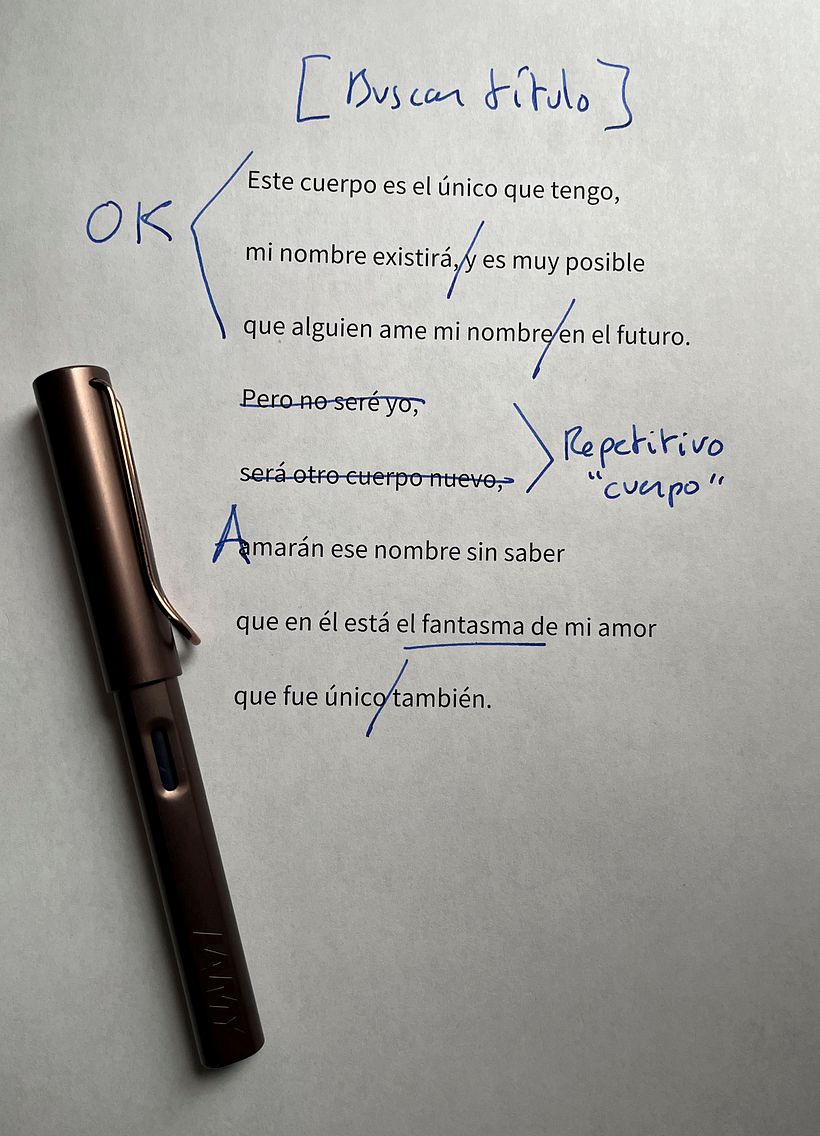 [Buscar título]
OK
Este cuerpo es el único que tengo,
mi nombre existirá, y es muy posible
que alguien ame mi nombre en el futuro.
Pero no seré yo,
será otro cuerpo nuevo,
Repetitivo
"cuerpo"
A
amarán ese nombre sin saber
que en él está el fantasma de mi amor
que fue único también.
LAMY